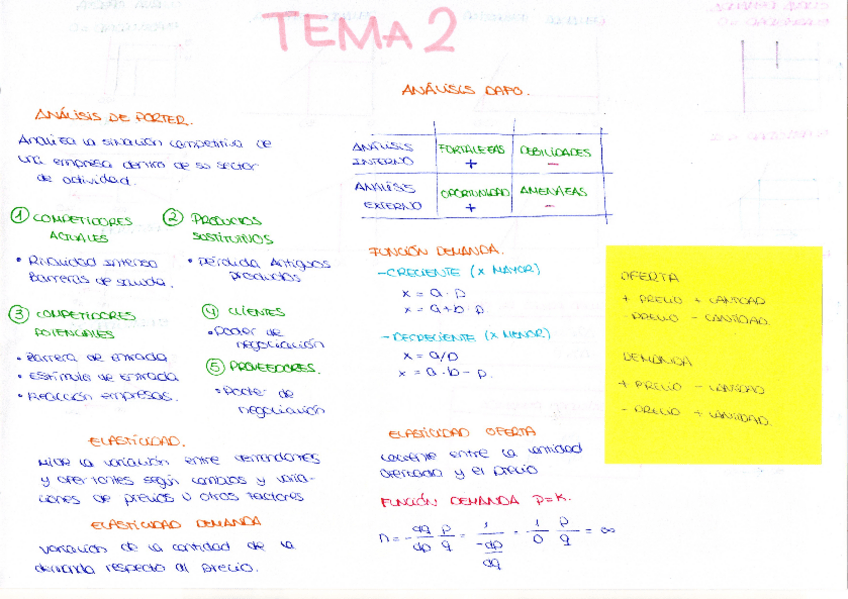 TEMA 2
ANÁLISIS DE PORTER.
Analiza la situación competitiva de
una empresa dentro de su sector
de actividad.
① COMPETIDORES
ACTUALES
• Rivalidad intensa
Barreras de salida.
② PRODUCTOS
SUSTITUTIVOS
• Pérdida Antiguos
productos
③ COMPETIDORES
POTENCIALES
• Barrera de entrada
• Estímulo de entrada
• Reacción empresas.
④ CLIENTES
• Poder de
negociación
⑤ PROVEEDORES.
• Poder de
negociación
ELASTICIDAD.
Mide la variación entre demandantes
y ofertantes según cambios y varia-
ciones de precios u otros factores
ELASTICIDAD DEMANDA
Variación de la cantidad de la
demanda respecto al precio.
ANÁLISIS DAFO.
ANÁLISIS INTERNO FORTALEZAS + DEBILIDADES -
ANÁLISIS EXTERNO OPORTUNIDAD + AMENAZAS -
FUNCIÓN DEMANDA.
- CRECIENTE (X MAYOR)
x = a · p
x = a + b · p
- DECRECIENTE (X MENOR)
x = a/p
x = a · b - p.
ELASTICIDAD OFERTA
Cociente entre la cantidad
ofertada y el precio
FUNCIÓN DEMANDA P=K.
n = - dq/dp p/q = 1/(-dp/dq) = 1/0 p/q = ∞
OFERTA
+ PRECIO + CANTIDAD
- PRECIO - CANTIDAD.
DEMANDA
+ PRECIO - CANTIDAD
- PRECIO + CANTIDAD.